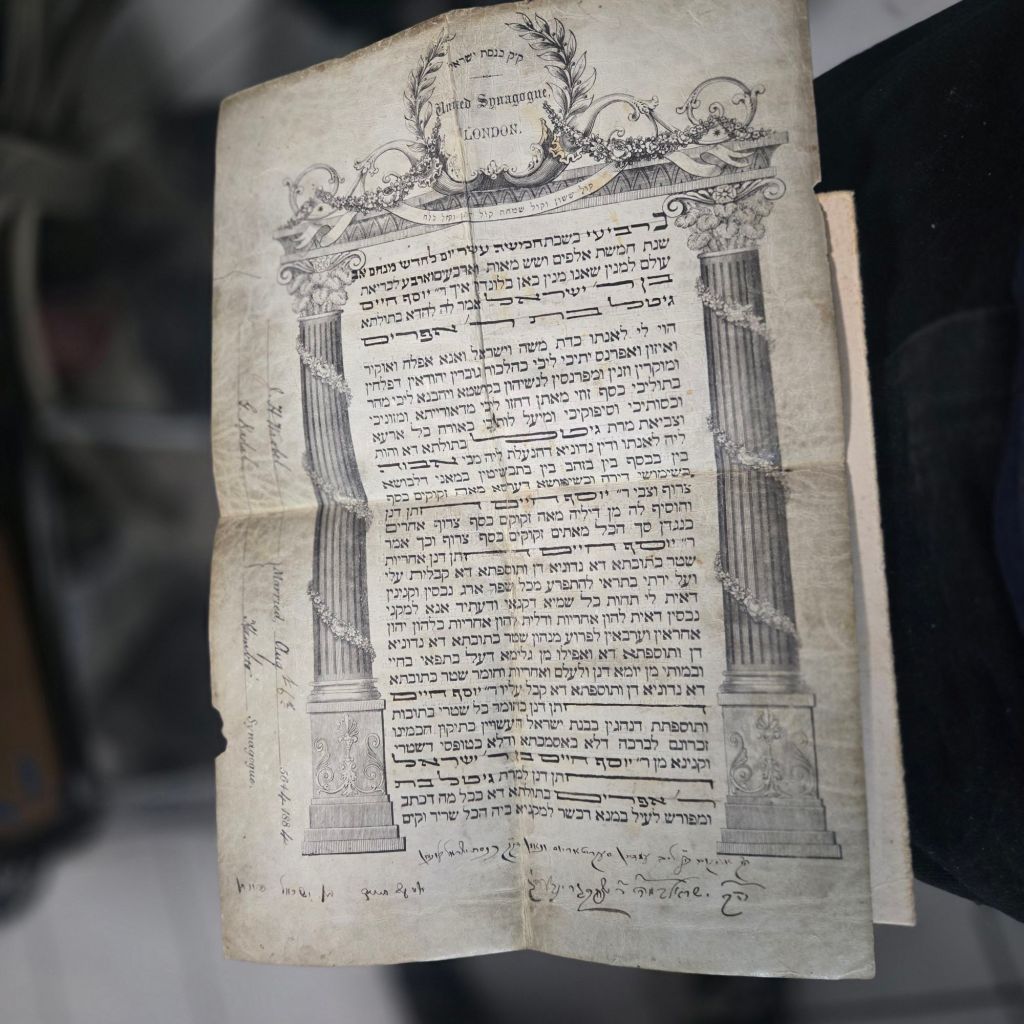 ק״ק כנסת ישראל
United Synagogue,
LONDON.
קול ששון וקול שמחה קול חתן וקול כלה
ברביעי בשבת חמשה עשר יום לחדש מנחם אב
שנת חמשת אלפים ושש מאות וארבעים וארבע לבריאת
עולם למנין שאנו מנין כאן בלונדון איך ר״ יוסף חיים
בן ר׳ ישראל אמר לה להדא בתולתא
גיטל בת ר׳ אפרים
הוי לי לאנתו כדת משה וישראל ואנא אפלח ואוקיר
ואיזון ואפרנס יתיכי ליכי כהלכות גוברין יהודאין דפלחין
ומוקרין וזנין ומפרנסין לנשיהון בקושטא ויהבנא ליכי מהר
בתוליכי כסף זוזי מאתן דחזו ליכי מדאורייתא ומזוניכי
וכסותיכי וסיפוקיכי ומיעל לותיכי כאורח כל ארעא
וצביאת מרת גיטל בתולתא דא והות
ליה לאנתו ודין נדוניא דהנעלת ליה מבי אבוה
בין בכסף בין בזהב בין בתכשיטין במאני דלבושא
בשימושי דירה ובשימושא דערסא מאה זקוקים כסף
צרוף וצבי ר״ יוסף חיים חתן דנן
והוסיף לה מן דיליה מאה זקוקים כסף צרוף אחרים
כנגדן סך הכל מאתים זקוקים כסף צרוף וכך אמר
ר״ יוסף חיים חתן דנן אחריות
שטר כתובתא דא נדוניא דן ותוספתא דא קבלית עלי
ועל ירתי בתראי להתפרע מכל שפר ארג נכסין וקנינין
דאית לי תחות כל שמיא דקנאי ודעתיד אנא למקני
נכסין דאית להון אחריות ודלית להון אחריות כלהון יהון
אחראין וערבאין לפרוע מנהון שטר כתובתא דא נדוניא
דן ותוספתא דא ואפילו מן גלימא דעל כתפאי בחיי
ובמותי מן יומא דנן ולעלם ואחריות וחומר שטר כתובתא
דא נדוניא דן ותוספתא דא קבל עליו ר״ יוסף חיים
חתן דנן כחומר כל שטרי כתובות
ותוספתת דנהגין בבנת ישראל העשויין כתיקון חכמינו
זכרונם לברכה דלא כאסמכתא ודלא כטופסי דשטרי
וקנינא מן ר״ יוסף חיים בר׳ ישראל
חתן דנן למרת גיטל בת
ר׳ אפרים בתולתא דא בכל מה דכתב
ומפורש לעיל במנא דכשר למקניא ביה הכל שריר וקים
Married Aug 6th 5644 - 1884
Hambro' Synagogue.